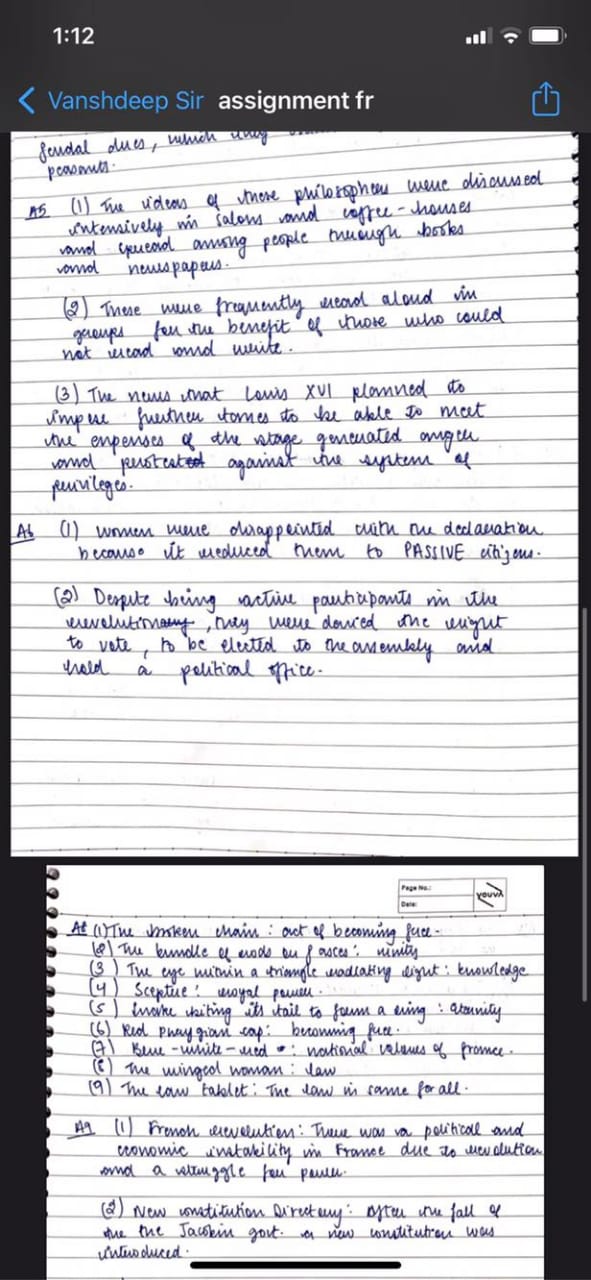 1:12
Vanshdeep Sir assignment fr
feudal dues, which they
peasants.
A5 (1) The ideas of these philosophers were discussed
intensively in salons and coffee-houses
and spread among people through books
and newspapers.
(2) These were frequently read aloud in
groups for the benefit of those who could
not read and write.
(3) The news that Louis XVI planned to
impose further taxes to be able to meet
the expenses of the stage generated anger
and protested against the system of
privileges.
A6 (1) women were disappointed with the declaration
because it reduced them to PASSIVE citizens.
(2) Despite being active participants in the
revolutionary, they were denied the right
to vote, to be elected to the assembly and
hold a political office.
Page No.:
Date:
youva
A8 (1) The broken chain : act of becoming free.
(2) The bundle of rods or fasces : unity
(3) The eye within a triangle radiating light : knowledge
(4) Sceptre : royal power.
(5) Snake biting its tail to form a ring : eternity
(6) Red Phrygian cap : becoming free.
(7) Blue-white-red : national colours of france.
(8) The winged woman : law
(9) The law tablet : The law is same for all.
A9 (1) French revolution : There was a political and
economic instability in France due to revolution
and a struggle for power.
(2) New constitution Directory : After the fall of
the the Jacobin govt. a new constitution was
introduced.